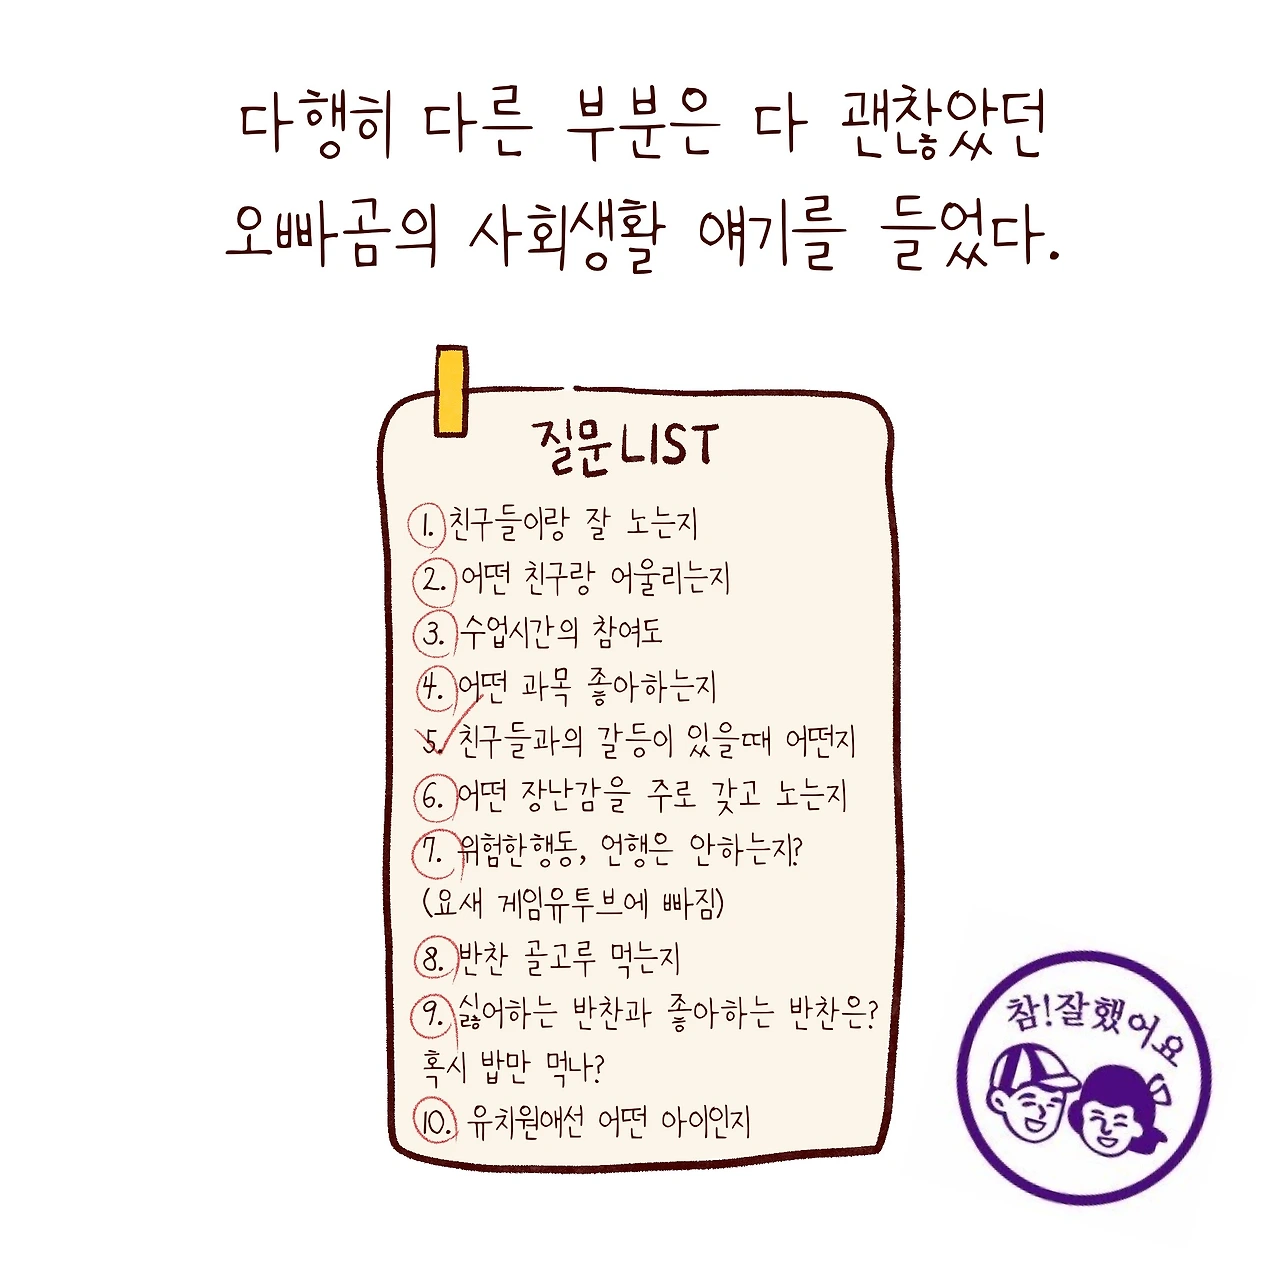 다행히 다른 부분은 다 괜찮았던
오빠곰의 사회생활 얘기를 들었다.
질문LIST
1. 친구들이랑 잘 노는지
2. 어떤 친구랑 어울리는지
3. 수업시간의 참여도
4. 어떤 과목 좋아하는지
5. 친구들과의 갈등이 있을때 어떤지
6. 어떤 장난감을 주로 갖고 노는지
7. 위험한행동, 언행은 안하는지?
(요새 게임유투브에 빠짐)
8. 반찬 골고루 먹는지
9. 싫어하는 반찬과 좋아하는 반찬은?
혹시 밥만 먹나?
10. 유치원애선 어떤 아이인지
참!잘했어요